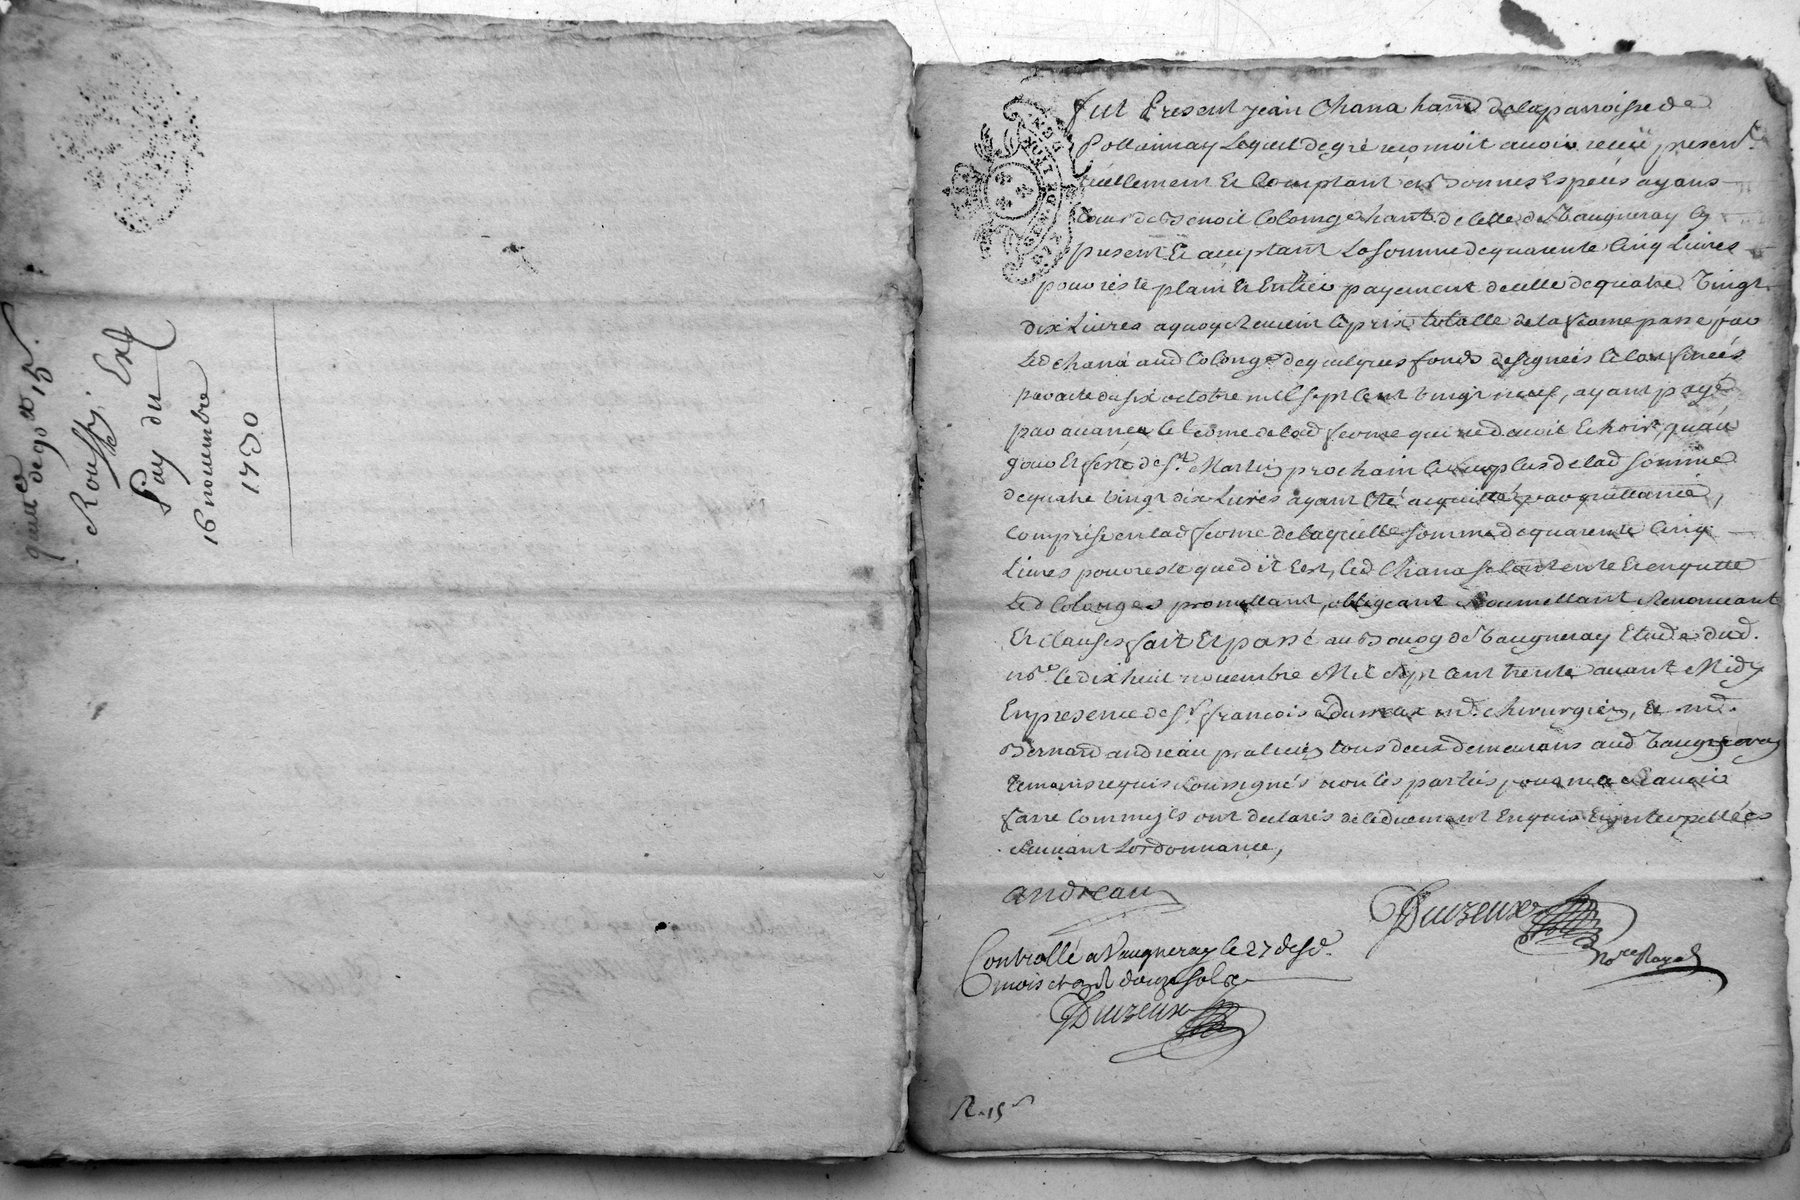 quitt.ce de 90 # 15 s.
Rousset, Exp
Pay du
16 novembre
1730
GEN DE LION
fut Present jean Chana hant. de la parroisse de
Pollionnay Lequel de gré reconnoit avoir receu presen
tuellement Et Comptant en Bonnes Espèces ayans
Cour de Benoit Colonge hant. de Celle de Vaugneray Cy
present Et aceptant La somme de quarente Cinq Livres
pour reste plain Et Entier payement de celle de quatre Vingt
dix Livres a quoy Revient le prix totalle de la ferme passé par
Led Chana aud Colonge de quelques fonds designés Et Confinés
par acte du six octobre mil sept Cent vingt neuf, ayant payé
par avance le terme de lad ferme qui ne devoit Echoir, qu'au
jour Et feste de St. Martin prochain le surplus de lad somme
de quatre vingt dix Livres ayant Eté acquitté par quittance,
Comprise en lad ferme de laquelle somme de quarente Cinq
Livres pour reste que dit Est, led Chana se Contente Et en quitte
Led Colonge promettant, obligeant Soumettant Renonceant
Et Clauses fait Et passé au Bourg de Vaugneray Etude dud.
nore. le dix huit novembre Mil Sept Cent trente avant Midy
En presence de Sr. francois Durreux md. chirurgien, Et md.
Bernard andreau praticien tous deux demeurans aud Vaugneray
temoins requis Soussignés non les parties pour ne scavoir
faire Comme ils ont declarés de le duement Enquis Et interpellées
suivant Lordonnance,
andreau
Durzeux
Nore Royal
Controllé a Vaugneray le 27 desd.
mois et an R douze sols
Durzeux
R. 15 s